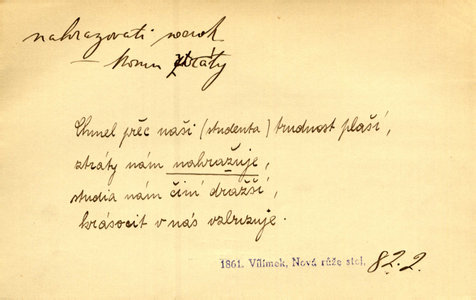 nahrazovati
komu ztráty
Chmel přec naši (studenta) trudnost plaší,
ztráty nám nahražuje,
studia nám činí dražší,
krásocit v nás vzbuzuje.
1861. Vilímek, Nová růže stol. 82.2.